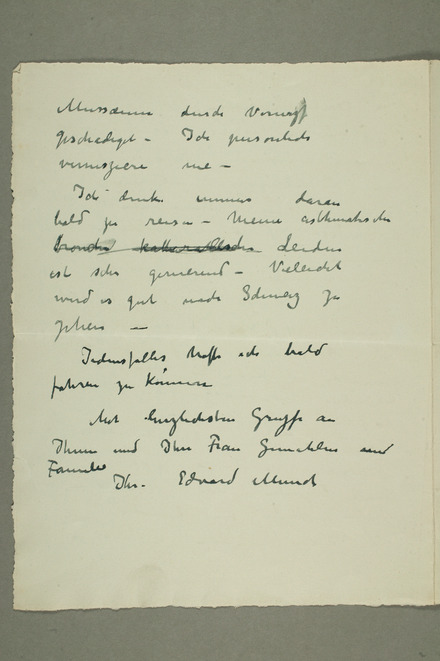 Museerne durch Verniss
geschädigt – Ich persönlich
vernissiere nie –
Ich denke immer daran
bald zu reisen – Meine asthmatischen
bronchi katharalische Leiden
ist sehr genierend – Vielleicht
wird es gut nach Schweiz zu
gehen —
Jedenfalls hoffe ich bald
fahren zu können
Mit herzlichsten Grüsse an
Ihnen und Ihre Frau Gemahlin und
Familie
Ihr. Edvard Munch